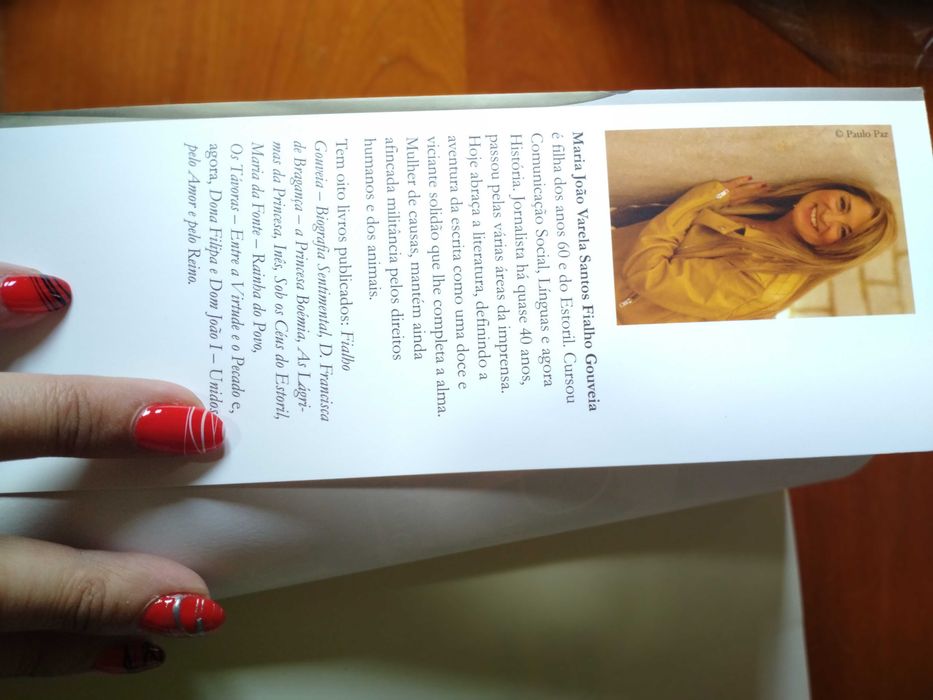 © Paulo Paz
Maria João Varela Santos Fialho Gouveia
é filha dos anos 60 e do Estoril. Cursou
Comunicação Social, Línguas e agora
História. Jornalista há quase 40 anos,
passou pelas várias áreas da imprensa.
Hoje abraça a literatura, definindo a
aventura da escrita como uma doce e
viciante solidão que lhe completa a alma.
Mulher de causas, mantém ainda
afincada militância pelos direitos
humanos e dos animais.
Tem oito livros publicados: Fialho
Gouveia – Biografia Sentimental, D. Francisca
de Bragança – a Princesa Boémia, As Lágri-
mas da Princesa, Inês, Sob os Céus do Estoril,
Maria da Fonte – Rainha do Povo,
Os Távoras – Entre a Virtude e o Pecado e,
agora, Dona Filipa e Dom João I – Unidos
pelo Amor e pelo Reino.